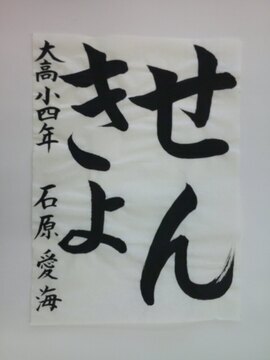 せん
きよ
大高小四年 石原愛海